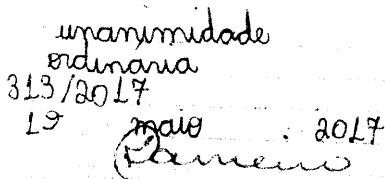 unanimidade
ordinária
313/2017
19 maio . 2017